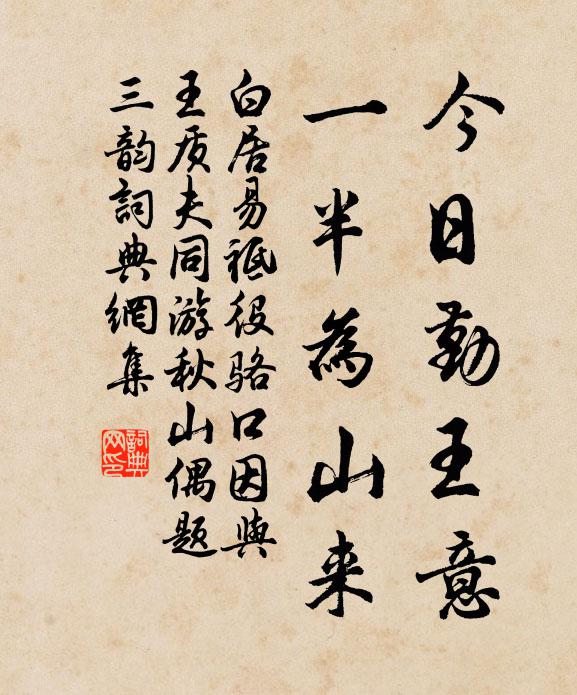 今日勤王意
一半為山来
白居易祗役骆口因與
王质夫同游秋山偶题
三韵詞典網集
詞典
网印